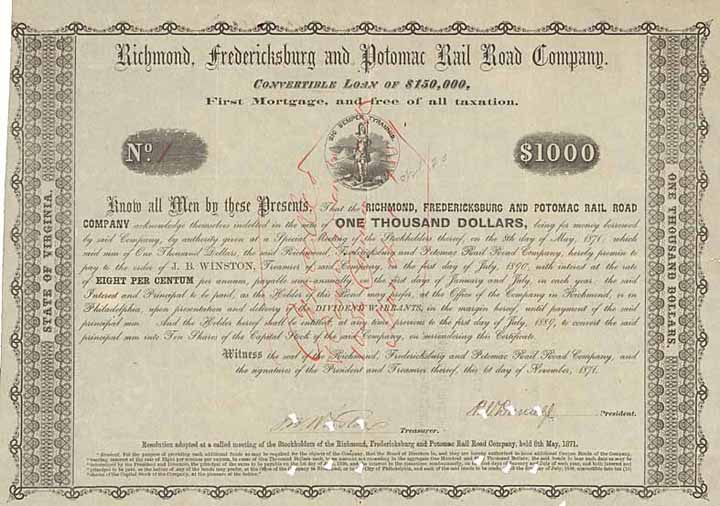 Richmond, Fredericksburg and Potomac Rail Road Company.
CONVERTIBLE LOAN OF $150,000,
First Mortgage, and free of all taxation.
SIC SEMPER TYRANNIS
No. 1
$1000
STATE OF VIRGINIA.
ONE THOUSAND DOLLARS.
Know all Men by these Presents, That the RICHMOND, FREDERICKSBURG AND POTOMAC RAIL ROAD
COMPANY acknowledge themselves indebted in the sum of ONE THOUSAND DOLLARS, being for money borrowed
by said Company, by authority given at a Special Meeting of the Stockholders thereof, on the 8th day of May, 1871; which
said sum of One Thousand Dollars, the said Richmond, Fredericksburg and Potomac Rail Road Company, hereby promise to
pay to the order of J. B. WINSTON, Treasurer of said Company, on the first day of July, 1890, with interest at the rate
of EIGHT PER CENTUM per annum, payable semi-annually on the first days of January and July, in each year; the said
Interest and Principal to be paid, as the Holder of this Bond may prefer, at the Office of the Company in Richmond, or in
Philadelphia, upon presentation and delivery of the DIVIDEND WARRANTS, in the margin hereof, until payment of the said
principal sum. And the Holder hereof shall be entitled, at any time previous to the first day of July, 1889, to convert the said
principal sum into Ten Shares of the Capital Stock of the said Company, on surrendering this Certificate.
Witness the seal of the Richmond, Fredericksburg and Potomac Rail Road Company, and
the signatures of the President and Treasurer thereof, this 1st day of November, 1871.
President.
Treasurer.
Resolution adopted at a called meeting of the Stockholders of the Richmond, Fredericksburg and Potomac Rail Road Company, held 8th May, 1871.